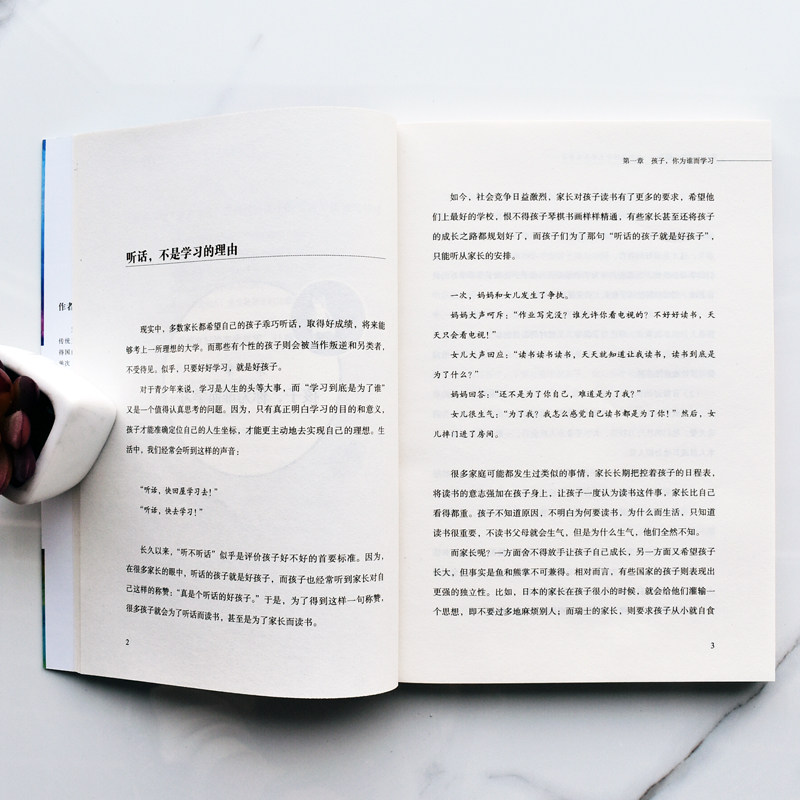 听话，不是学习的理由
现实中，多数家长都希望自己的孩子乖巧听话，取得好成绩，将来能
够考上一所理想的大学。而那些有个性的孩子则会被当作叛逆和另类者，
不受待见。似乎，只要好好学习，就是好孩子。
对于青少年来说，学习是人生的头等大事，而“学习到底是为了谁”
又是一个值得认真思考的问题。因为，只有真正明白学习的目的和意义，
孩子才能准确定位自己的人生坐标，才能更主动地去实现自己的理想。生
活中，我们经常会听到这样的声音：
“听话，快回屋学习去！”
“听话，快去学习！”
长久以来，“听不听话”似乎是评价孩子好不好的首要标准。因为，
在很多家长的眼中，听话的孩子就是好孩子，而孩子也经常听到家长对自
己这样的称赞：“真是个听话的好孩子。”于是，为了得到这样一句称赞，
很多孩子就会为了听话而读书，甚至是为了家长而读书。
2
第一章 孩子，你为谁而学习
如今，社会竞争日益激烈，家长对孩子读书有了更多的要求，希望他
们上最好的学校，恨不得孩子琴棋书画样样精通，有些家长甚至还将孩子
的成长之路都规划好了，而孩子们为了那句“听话的孩子就是好孩子”，
只能听从家长的安排。
一次，妈妈和女儿发生了争执。
妈妈大声呵斥：“作业写完没？谁允许你看电视的？不好好读书，天
天只会看电视！”
女儿大声回应：“读书读书读书，天天就知道让我读书，读书到底是
为了什么？”
妈妈回答：“还不是为了你自己，难道是为了我？”
女儿很生气：“为了我？我怎么感觉自己读书都是为了你！”然后，女
儿摔门进了房间。
很多家庭可能都发生过类似的事情，家长长期把控着孩子的日程表，
将读书的意志强加在孩子身上，让孩子一度认为读书这件事，家长比自己
看得都重。孩子不知道原因，不明白为何要读书，为什么而生活，只知道
读书很重要，不读书父母就会生气，但是为什么生气，他们全然不知。
而家长呢？一方面舍不得放手让孩子自己成长，另一方面又希望孩子
长大，但事实是鱼和熊掌不可兼得。相对而言，有些国家的孩子则表现出
更强的独立性。比如，日本的家长在孩子很小的时候，就会给他们灌输一
个思想，即不要过多地麻烦别人；而瑞士的家长，则要求孩子从小就自食
3